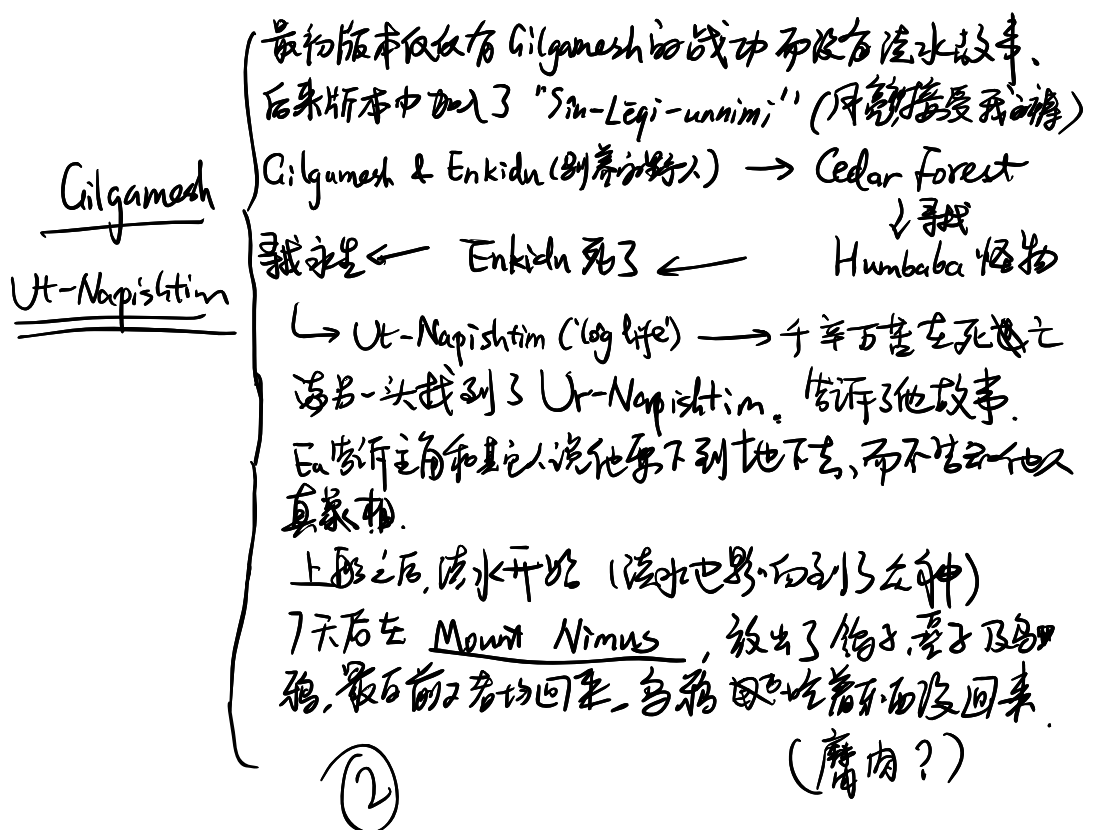 最初版本仅仅有 Gilgamesh 的战功而没有洪水故事、
后来版本中加入了 "Sin-Leqi-unnimi" (月亮接受我的祷)
Gilgamesh & Enkidu (驯养的野人) → Cedar Forest
↓ 寻找
寻找永生 ← Enkidu 死了 ← Humbaba 怪物
Gilgamesh
Ut-Napishtim
↳ Ut-Napishtim ('log life') → 千辛万苦在死亡
海另一头找到了 Ur-Napishtim。告诉了他故事.
Ea告诉主角和其它人说他要下到地下去、而不告示他人
真象相.
上船之后, 洪水开始 (洪水也影响到了众神)
7天后在 Mount Nimus, 放出了鸽子、燕子及乌
鸦, 最后前2者均回来, 乌鸦吃着东西没回来.
(腐肉?)
②